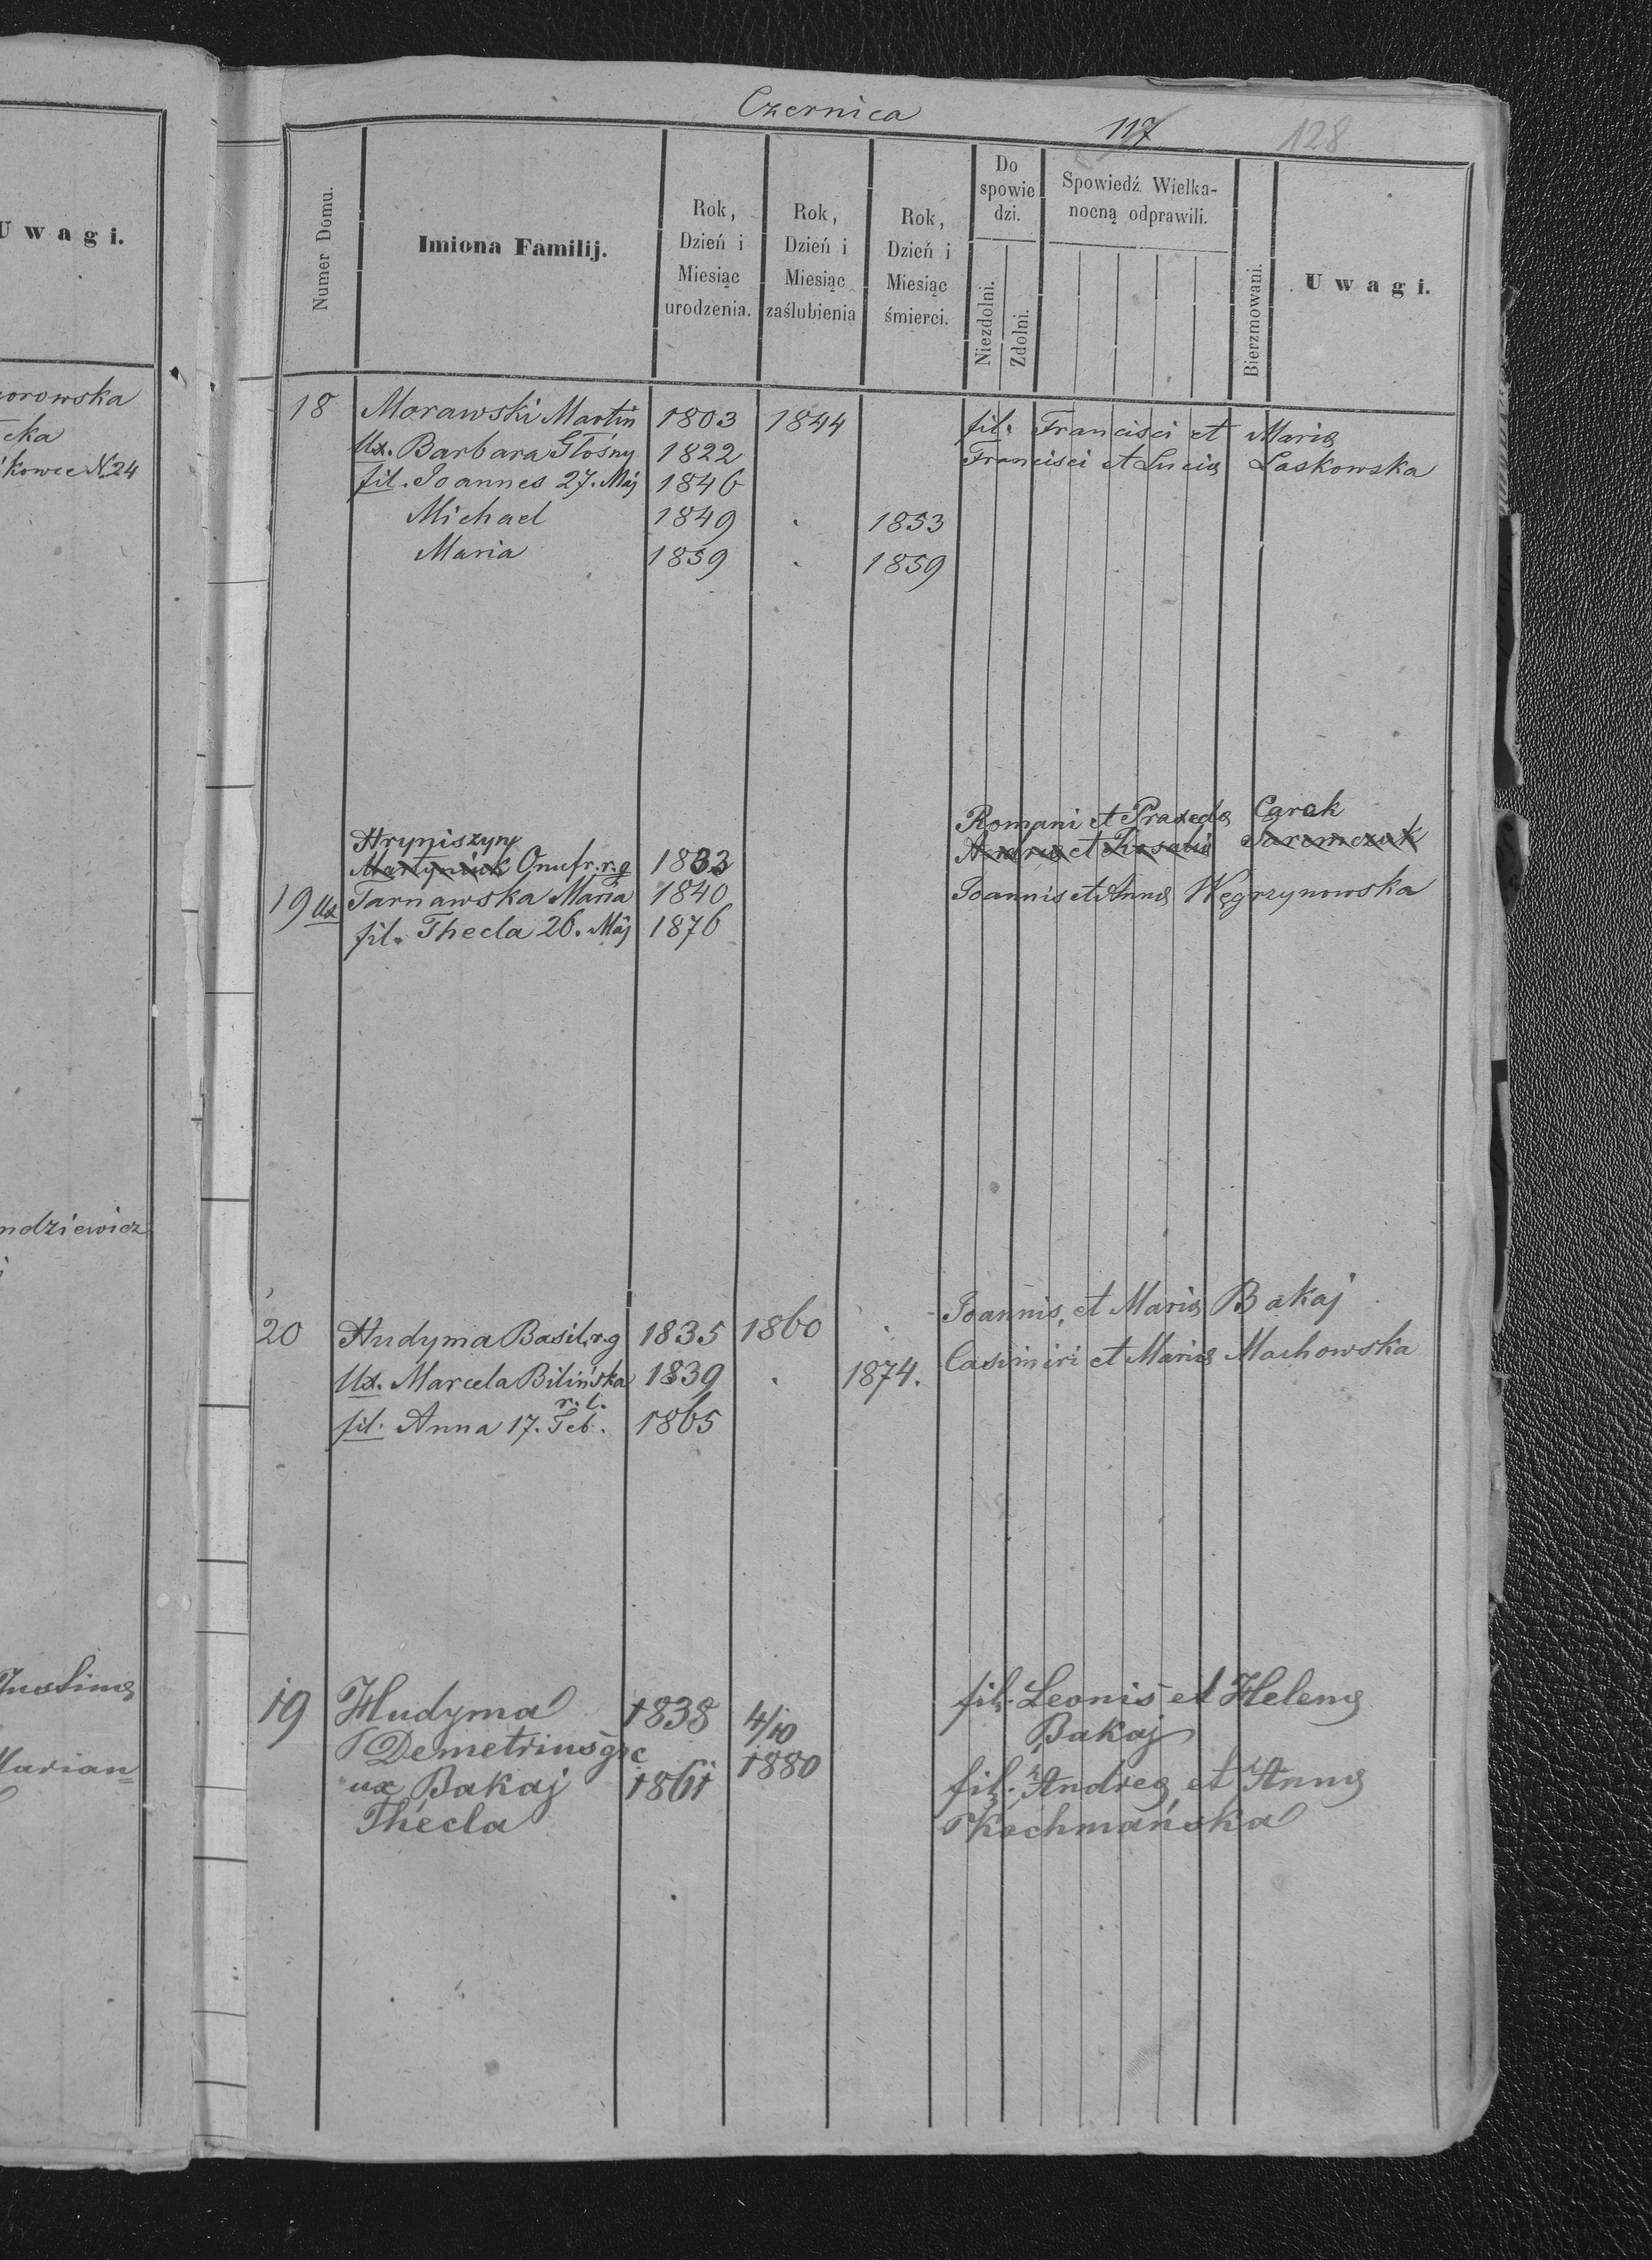 Czernica
117
128
Uwagi.
Numer Domu.
Imiona Familij.
Rok, Dzień i Miesiąc urodzenia.
Rok, Dzień i Miesiąc zaślubienia
Rok, Dzień i Miesiąc śmierci.
Do spowiedzi.
Niezdolni.
Zdolni.
Spowiedź Wielkanocną odprawili.
Bierzmowani.
Uwagi.
orowska
cka
kowce N. 24
18 Morawski Martin 1803 1844 fil. Francisci et Mariæ
Ux. Barbara Głośny 1822 Francisci et Luciæ Laskowska
fil. Joannes 27. Maj 1846
Michael 1849 . 1853
Maria 1859 . 1859
Hryniszyny Romani et Praxedæ Carek
Martyniuk Onufr. r. g 1833 Andreæ et Rosaliæ Jaremczuk
19 Ux Tarnawska Maria 1840 Joannis et Annæ Węgrzynowska
fil. Thecla 26. Maj 1876
ndziewicz
20 Hudyma Basil. r. g 1835 1860 . Joannis, et Mariæ Bakaj
Ux. Marcela Bilińska 1839 . 1874. Casimiri et Mariæ Machowska
r. l.
fil. Anna 17. Feb. 1865
Justinæ
19 Hudyma 1838 4/10 fil. Leonis et Helenæ
Demetrius gr. c 1880 Bakaj
Marian=
ux Bakaj 1861 fil. Andreæ et Annæ
Thecla Kochmańska